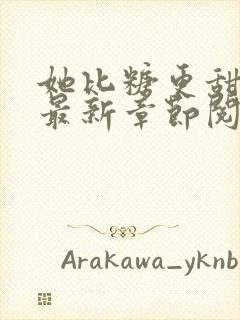 她比糖更甜
最新章节阅
Arakawa_yknb